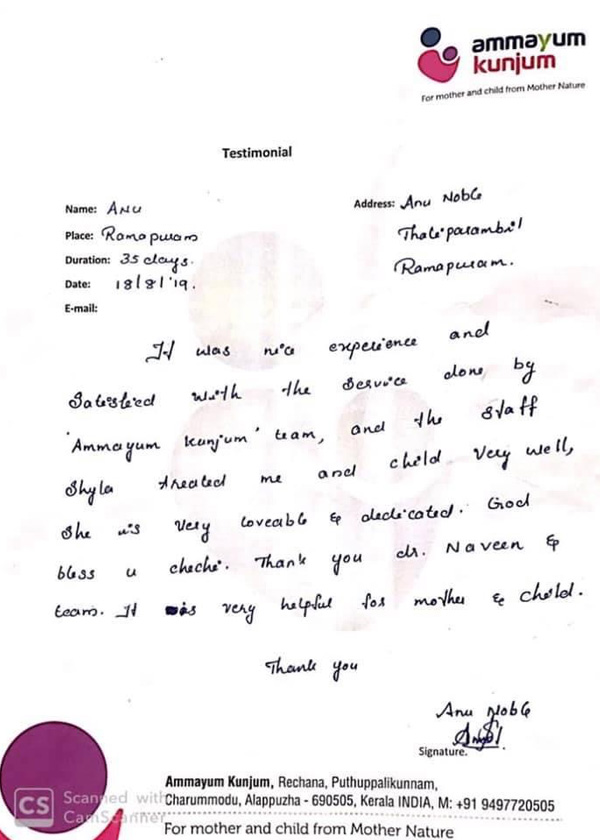 ammayum
kunjum
For mother and child from Mother Nature
Testimonial
Name: ANU
Place: Ramapuram
Duration: 35 days.
Date: 18/8/'19.
E-mail:
Address: Anu Noble
Thaleparambil
Ramapuram.
It was nice experience and
Satesfied with the Service done by
'Ammayum kunjum' team, and the Staff
Shyla treated me and child very well,
She is very loveable & dedicated. God
bless u cheche. Thank you dr. Naveen &
team. It is very helpful for mother & child.
Thank you
Anu Noble
Signature.
Ammayum Kunjum, Rechana, Puthuppalikunnam,
Charummodu, Alappuzha - 690505, Kerala INDIA, M: +91 9497720505
For mother and child from Mother Nature
CS Scanned with
CamScanner